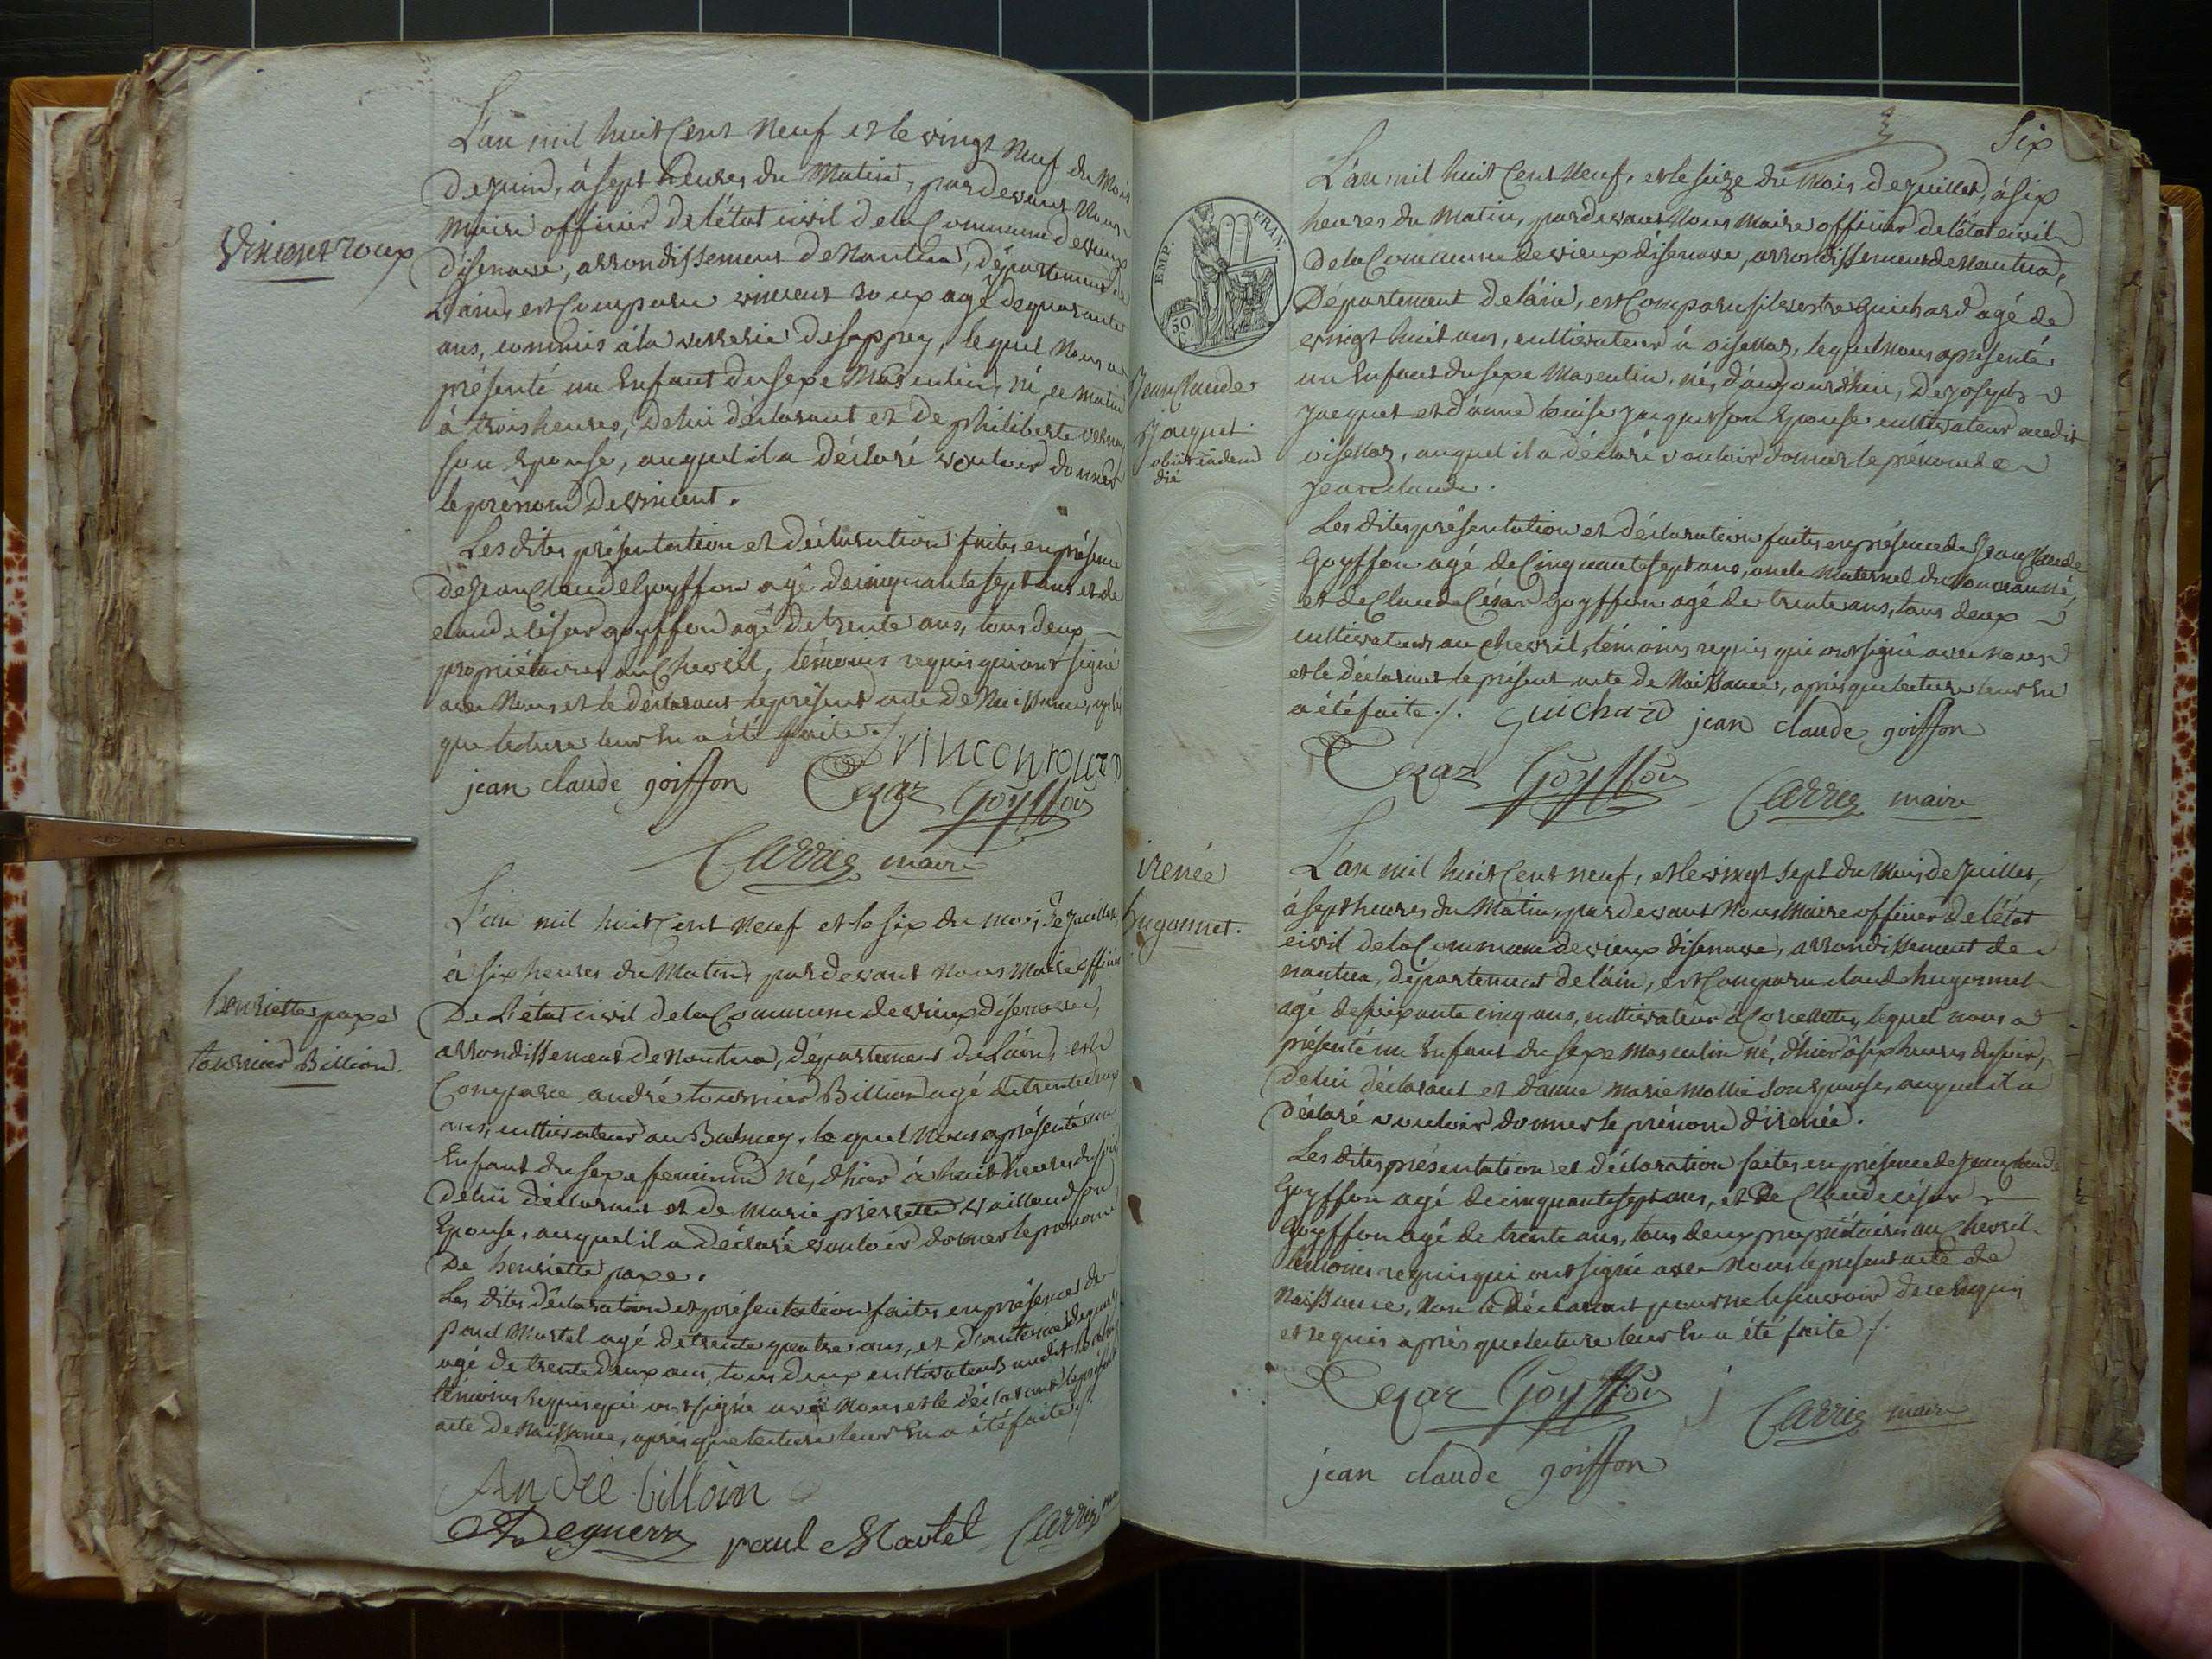 L'an mil huit Cent Neuf et le vingt Neuf du Mois
Dejuin, à sept heures du Matin, pardevant Nous
Maire officier De l'état civil De la Commune devieux
Vincent roux
disenave, arrondissement De Nantua, département de
L'ain, est Comparu vincent roux agé de quarante
ans, commis à la verrerie de sappey, lequel Nous a
présenté un Enfant du sexe Masculin, né ce matin
à trois heures, De lui déclarant et De philiberte
son Epouse, auquel il a Déclaré vouloir donner
le prénom De vincent.
Lesdites présentation et déclaration faites en présence
De Jean Claude Goyffon agé de cinquante sept ans et de
claude césar goyffon agé de trente ans, tous deux
propriétaires au Chevril, témoins requis qui ont signé
avec Nous et le Déclarant le présent acte De Naissance, après
que lecture leur En a été faite ./.
vincen roux
jean claude goiffon Cezar Goyffon
Carrier maire
L'an mil huit Cent Neuf et le six du mois de Juillet
à six heures du Matin, pardevant nous Maire officier
De L'état civil de la Commune de vieux disenave,
henriette pape
tournier Billion.
arrondissement De Nantua, département de L'ain, est
Comparu andré tournier Billion agé de trente deux
ans, cultivateur au Balmey, lequel Nous a présenté un
Enfant du sexe feminin né, d'hier à huit heures du soir
De lui déclarant et de Marie pierrette vailloud son
Epouse, auquel il a Déclaré vouloir donner le prenom
De henriette pape.
Les dites déclaration et présentation faites en présence de
paul Martel agé de trente quatre ans, et d'antoine
agé de trente deux ans, tous deux cultivateurs audit
témoins requis qui ont signé avec Nous et le déclarant le présent
acte De Naissance, après que lecture leur En a été faite ./.
André billion
paul Martel Carrier
Six
EMP. FRAN.
50 C.
L'an mil huit Cent Neuf, et le seize du Mois de juillet, à six
heures du Matin, pardevant Nous Maire officier de l'état civil
De la Commune de vieux disenave, arrondissement de Nantua,
Département de l'ain, est Comparu silvestre Guichard agé de
vingt huit ans, cultivateur à oisellaz, lequel nous a présenté
Jean Claude
Jacquet
obiit eadem
die
un Enfant du sexe Masculin, né, d'aujourd'hui, De joseph
Jacquet et d'anne louise jacquet son Epouse cultivateur audit
oisellaz, auquel il a déclaré vouloir donner le prénom de
jean claude.
Les dites présentation et déclaration faites en présence de Jean Claude
Goyffon agé de Cinquante sept ans, oncle Maternel du Nouveau né,
et de Claude César Goyffon agé de trente ans, tous deux
cultivateurs au chevril, témoins requis qui ont signé avec nous
et le déclarant le présent acte de Naissance, après que lecture leur En
a été faite ./. Guichard jean claude goiffon
Cezar Goyffon Carrier maire
irenée
hugonnet.
L'an mil huit Cent neuf, et le vingt sept du Mois de Juillet,
à sept heures du Matin, pardevant Nous Maire officier De l'état
civil de la Commune de vieux disenave, arrondissement de
nantua, département de l'ain, est Comparu claude hugonnet
agé de soixante cinq ans, cultivateur à Corcelettes, lequel nous a
présenté un Enfant du sexe Masculin né, d'hier à six heures du soir,
De lui déclarant et d'anne Marie Mollie son Epouse, auquel il a
Déclaré vouloir donner le prénom d'irenée.
Les dites présentation et déclaration faites en présence de Jean Claude
Goyffon agé de cinquante sept ans, et De Claude césar
Goyffon agé de trente ans, tous deux propriétaires au Chevril
témoins requis qui ont signé avec Nous le présent acte de
Naissance, Non le déclarant pour ne le savoir de ce enquis
et requis après que lecture leur En a été faite ./.
Cezar Goyffon Carrier maire
jean claude goiffon